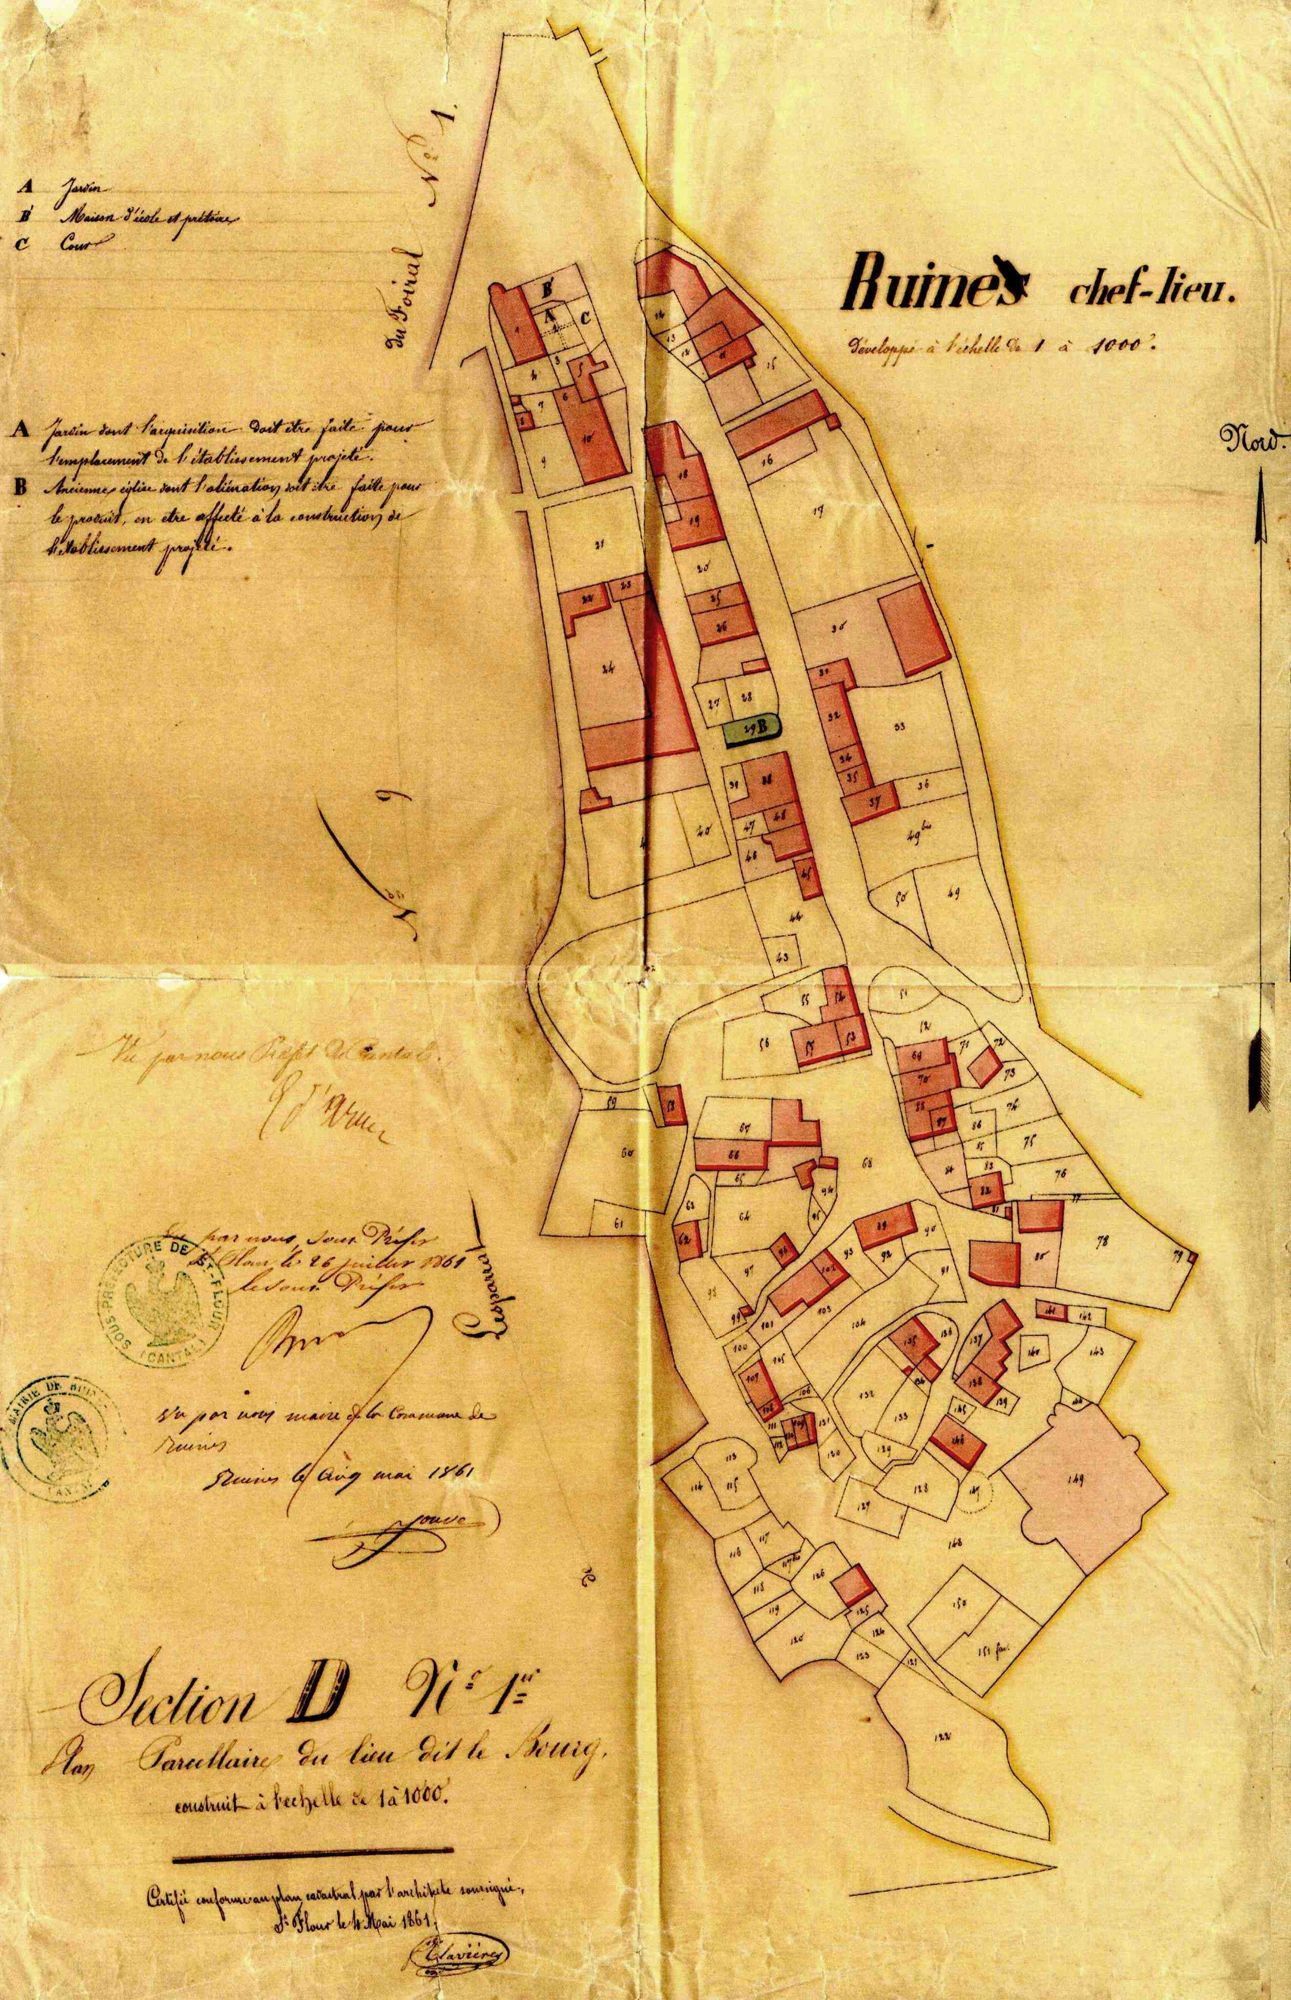 A Jardin
B Maison d'école et prétoire
C Cour
du Foiral
N° 1.
Ruines chef-lieu.
Développé à l'échelle de 1 à 1000e.
Nord.
A Jardin dont l'acquisition doit être faite pour
l'emplacement de l'établissement projeté.
B Ancienne église dont l'aliénation doit être faite pour
le produit, en etre affecté à la construction de
l'établissement projeté.
B
A C
1
4 3 5
7 6
8
9 10
14
13
12 11 15
16
17
18
19
20
21
22 23
24
25
26
27 28
29 B
30
31
32
33
34
35 36
37
38
39
40
43
44
45
46
47 48
49 bis
50 49
51
52
53
54
55
56 57
58
59
60
61
62
63
64
65
66
67
68
69
70
71 72
73
74
75
76
77
78
79
80
81
82
83
84
85
86
87
88
89
90
91
92
93
94
95
96
97
98
99
100
101
102
103
104
105
106
107
108
109
110
111
112
113
114 115
116 117
117 bis
118
119
120
121
122
123
124
125
126
127
128
129
130
131
132
133
134
135 136
137
138
139
140
141 142
143
145
146
147
148
149
150
151
N° 9
Lesparrat
Vu par nous Préfet du Cantal.
Vu par nous, Sous Préfet
St Flour, le 26 juillet 1861
le Sous Préfet
SOUS-PRÉFECTURE DE ST-FLOUR
(CANTAL)
MAIRIE DE RUINES
CANTAL
Vu par nous maire de la Commune de
Ruines
Ruines le cinq mai 1861
Jouve
Section D N° 1er
Plan Parcellaire du lieu dit le Bourg,
construit à l'echelle de 1 à 1000e.
Certifié conforme au plan cadastral par l'architecte soussigné,
St Flour le 4 Mai 1861.
Clavières